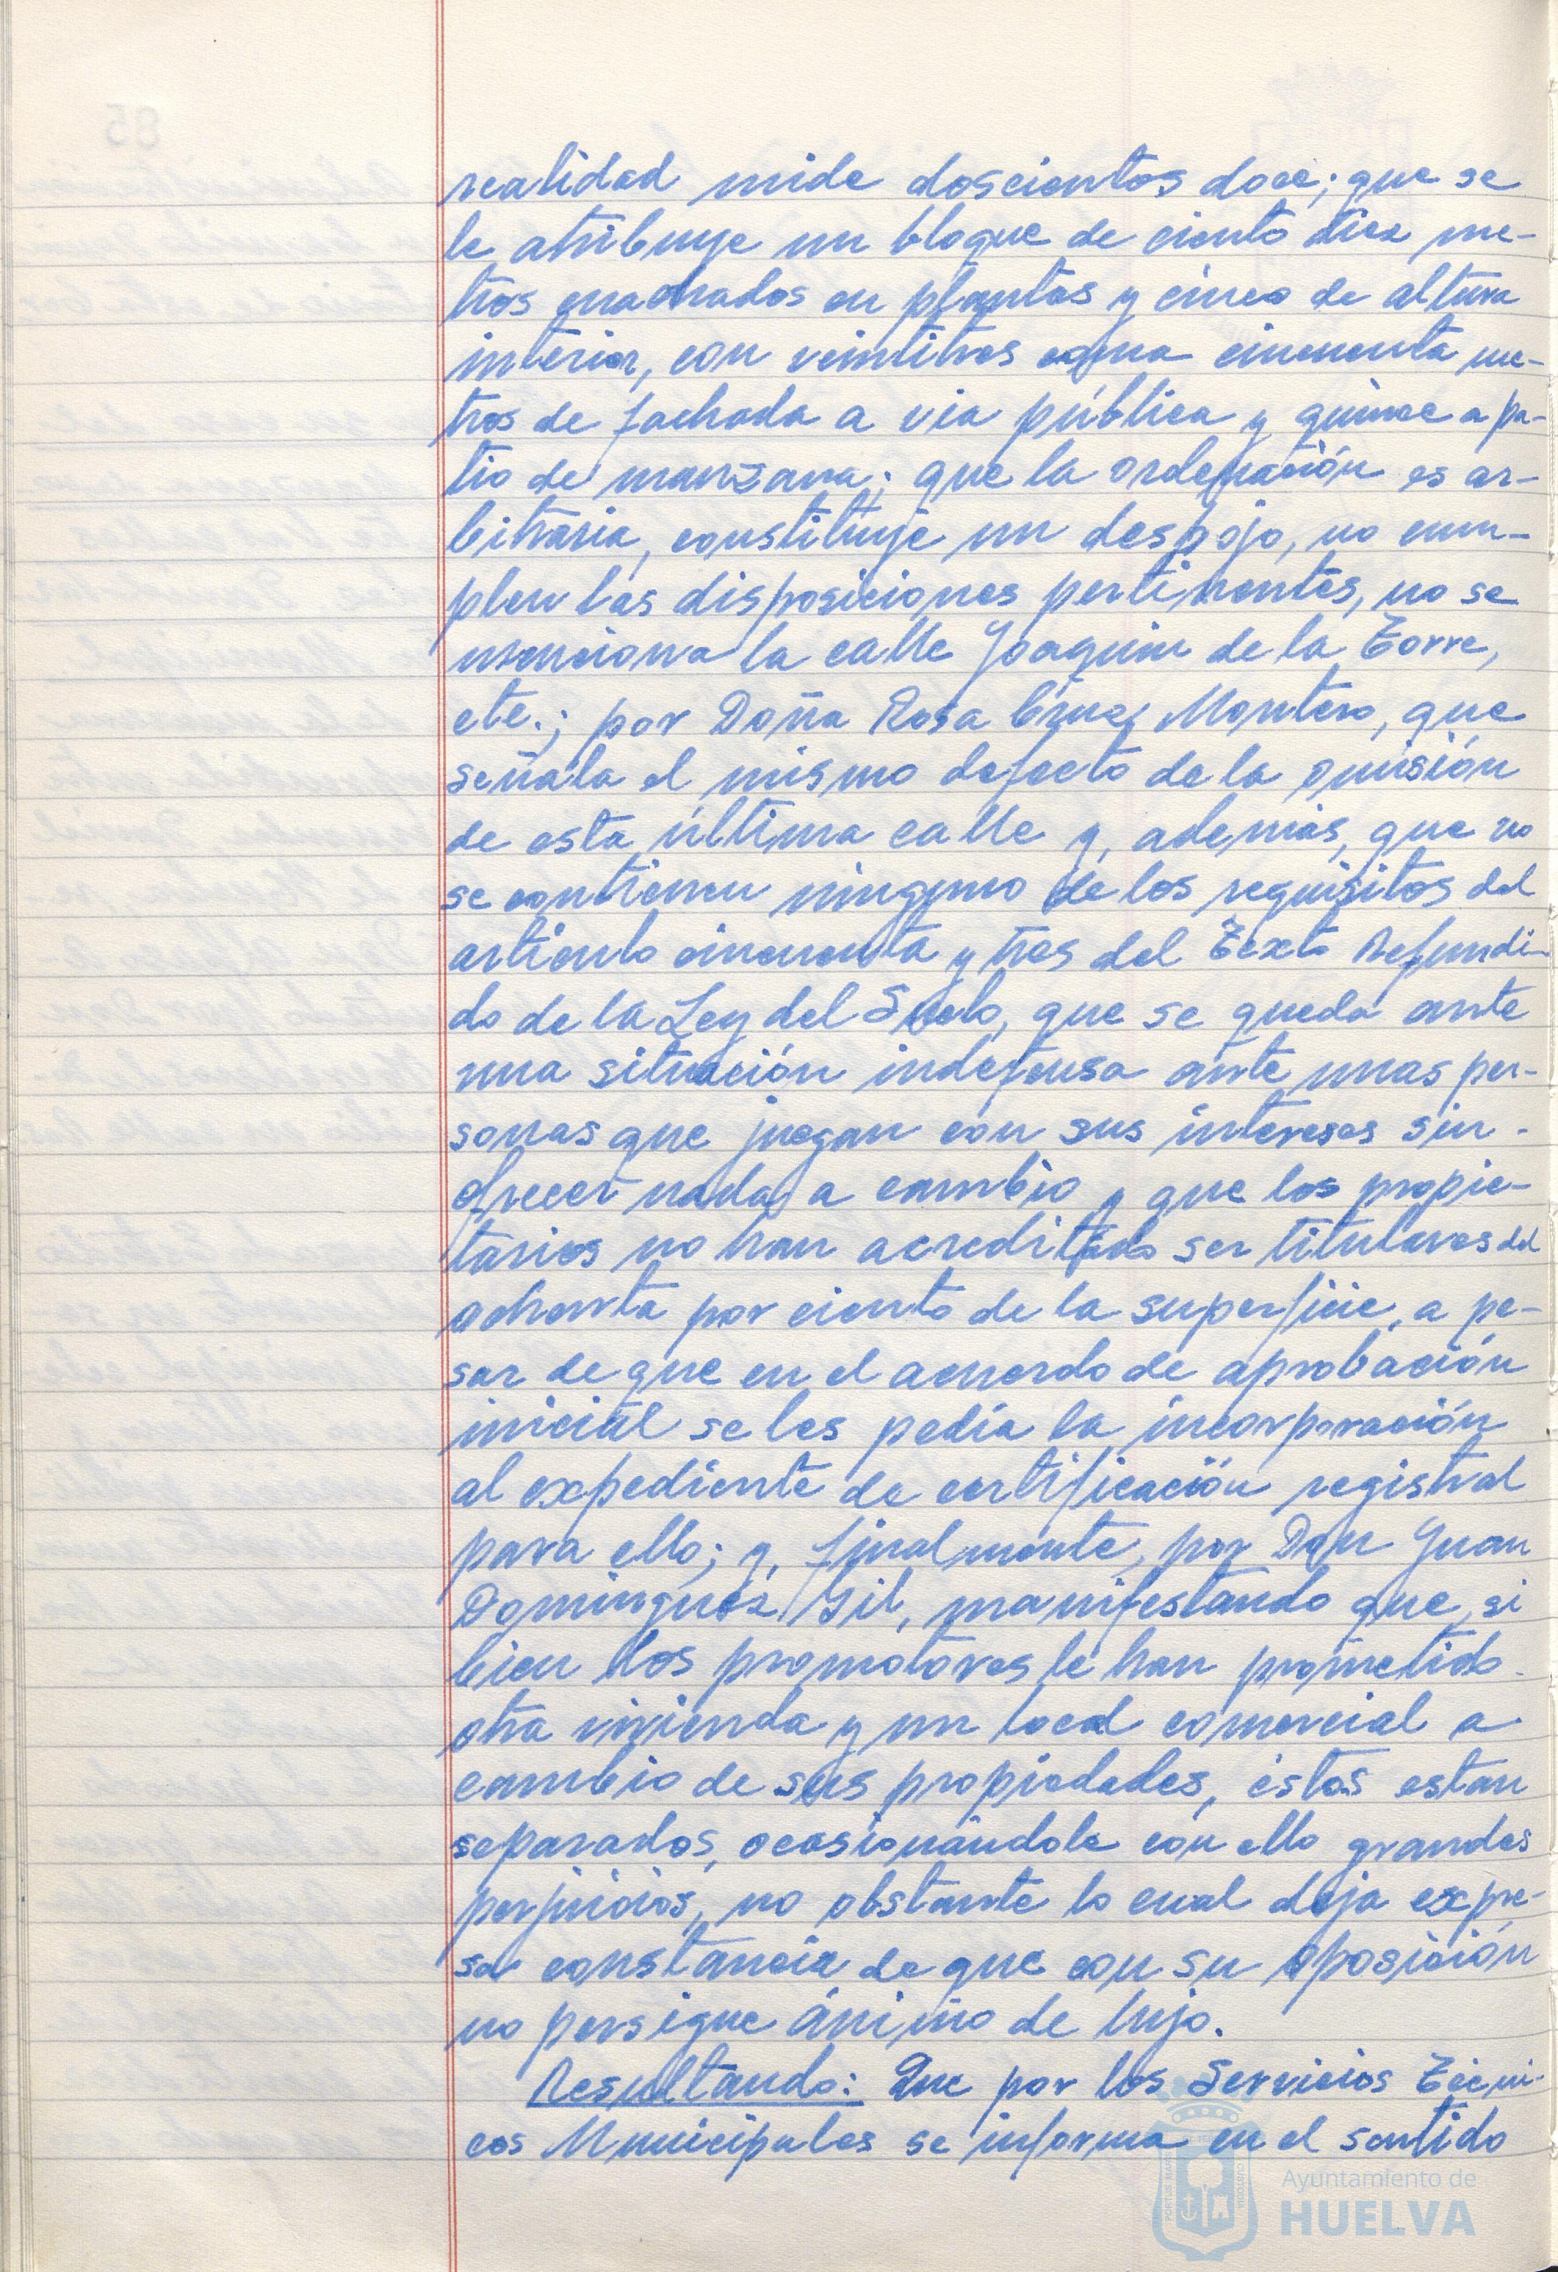 realidad mide doscientos doce; que se
le atribuye un bloque de ciento diez me-
tros cuadrados en plantas y cinco de altura
interior, con veintitres coma cincuenta me-
tros de fachada a via pública y quince a pa-
tio de manzana; que la ordenación es ar-
bitraria, constituye un despojo, no cum-
plen las disposiciones pertinentes, no se
menciona la calle Joaquin de la Torre,
etc.; por Doña Rosa Cruz Montero, que
señala el mismo defecto de la omisión
de esta última calle y, además, que no
se contienen ninguno de los requisitos del
artículo cincuenta y tres del Texto Refundi-
do de la Ley del Suelo, que se queda ante
una situación indefensa ante unas per-
sonas que juegan con sus intereses sin
ofrecer nada a cambio y que los propie-
tarios no han acreditado ser titulares del
ochenta por ciento de la superficie, a pe-
sar de que en el acuerdo de aprobación
inicial se les pedía la incorporación
al expediente de certificación registral
para ello; y, finalmente, por Don Juan
Dominguez Gil, manifestando que, si
bien los promotores le han prometido
otra vivienda y un local comercial a
cambio de sus propiedades, éstas estan
separados, ocasionándole con ello grandes
perjuicios, no obstante lo cual deja expre-
sa constancia de que con su oposición
no persigue ánimo de lujo.
Resultando: Que por los Servicios Técni-
cos Municipales se informa en el sentido
Ayuntamiento de
HUELVA